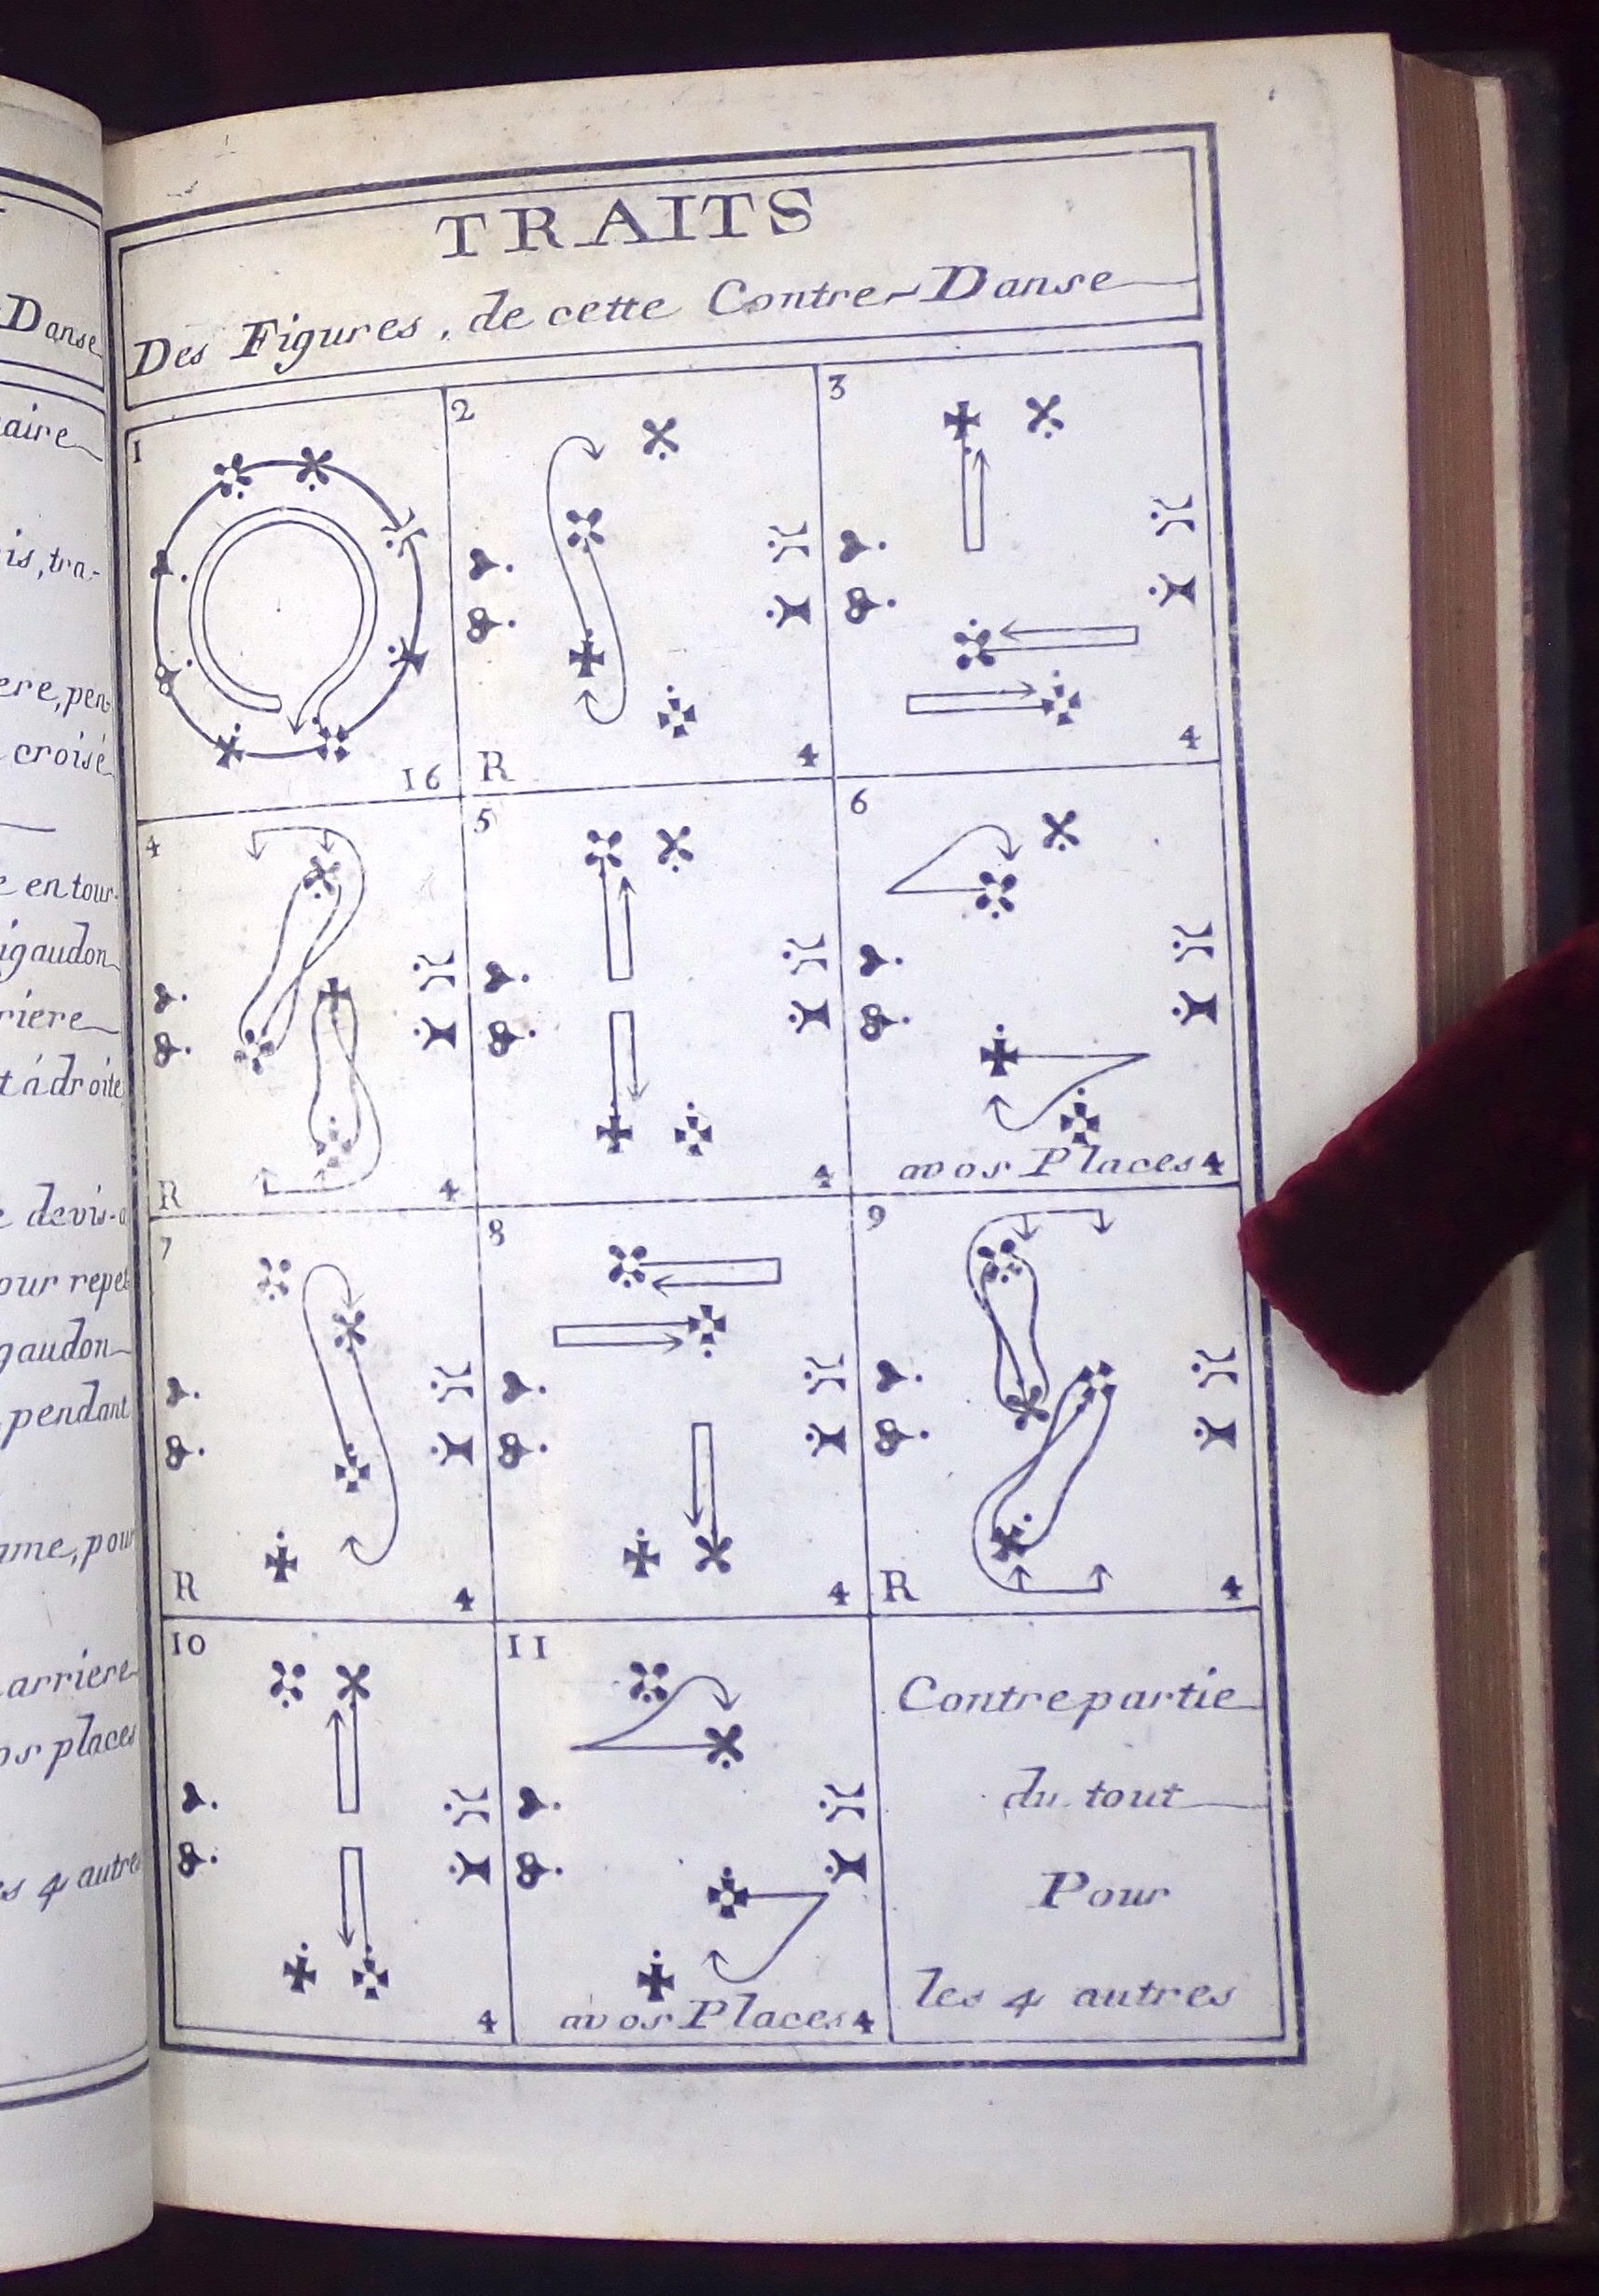 Danse
aire
is, tra-
ere, pen-
croisé
en tour-
igaudon
riere
t à droite
devis-a
our repet
gaudon
pendant
ame, pour
arriere
os places
s 4 autres
TRAITS
Des Figures, de cette Contre-Danse
1
16
2
R 4
3
4
4
R 4
5
4
6
avos Places 4
7
R 4
8
4
9
R 4
10
4
11
avos Places 4
Contrepartie
du tout
Pour
les 4 autres